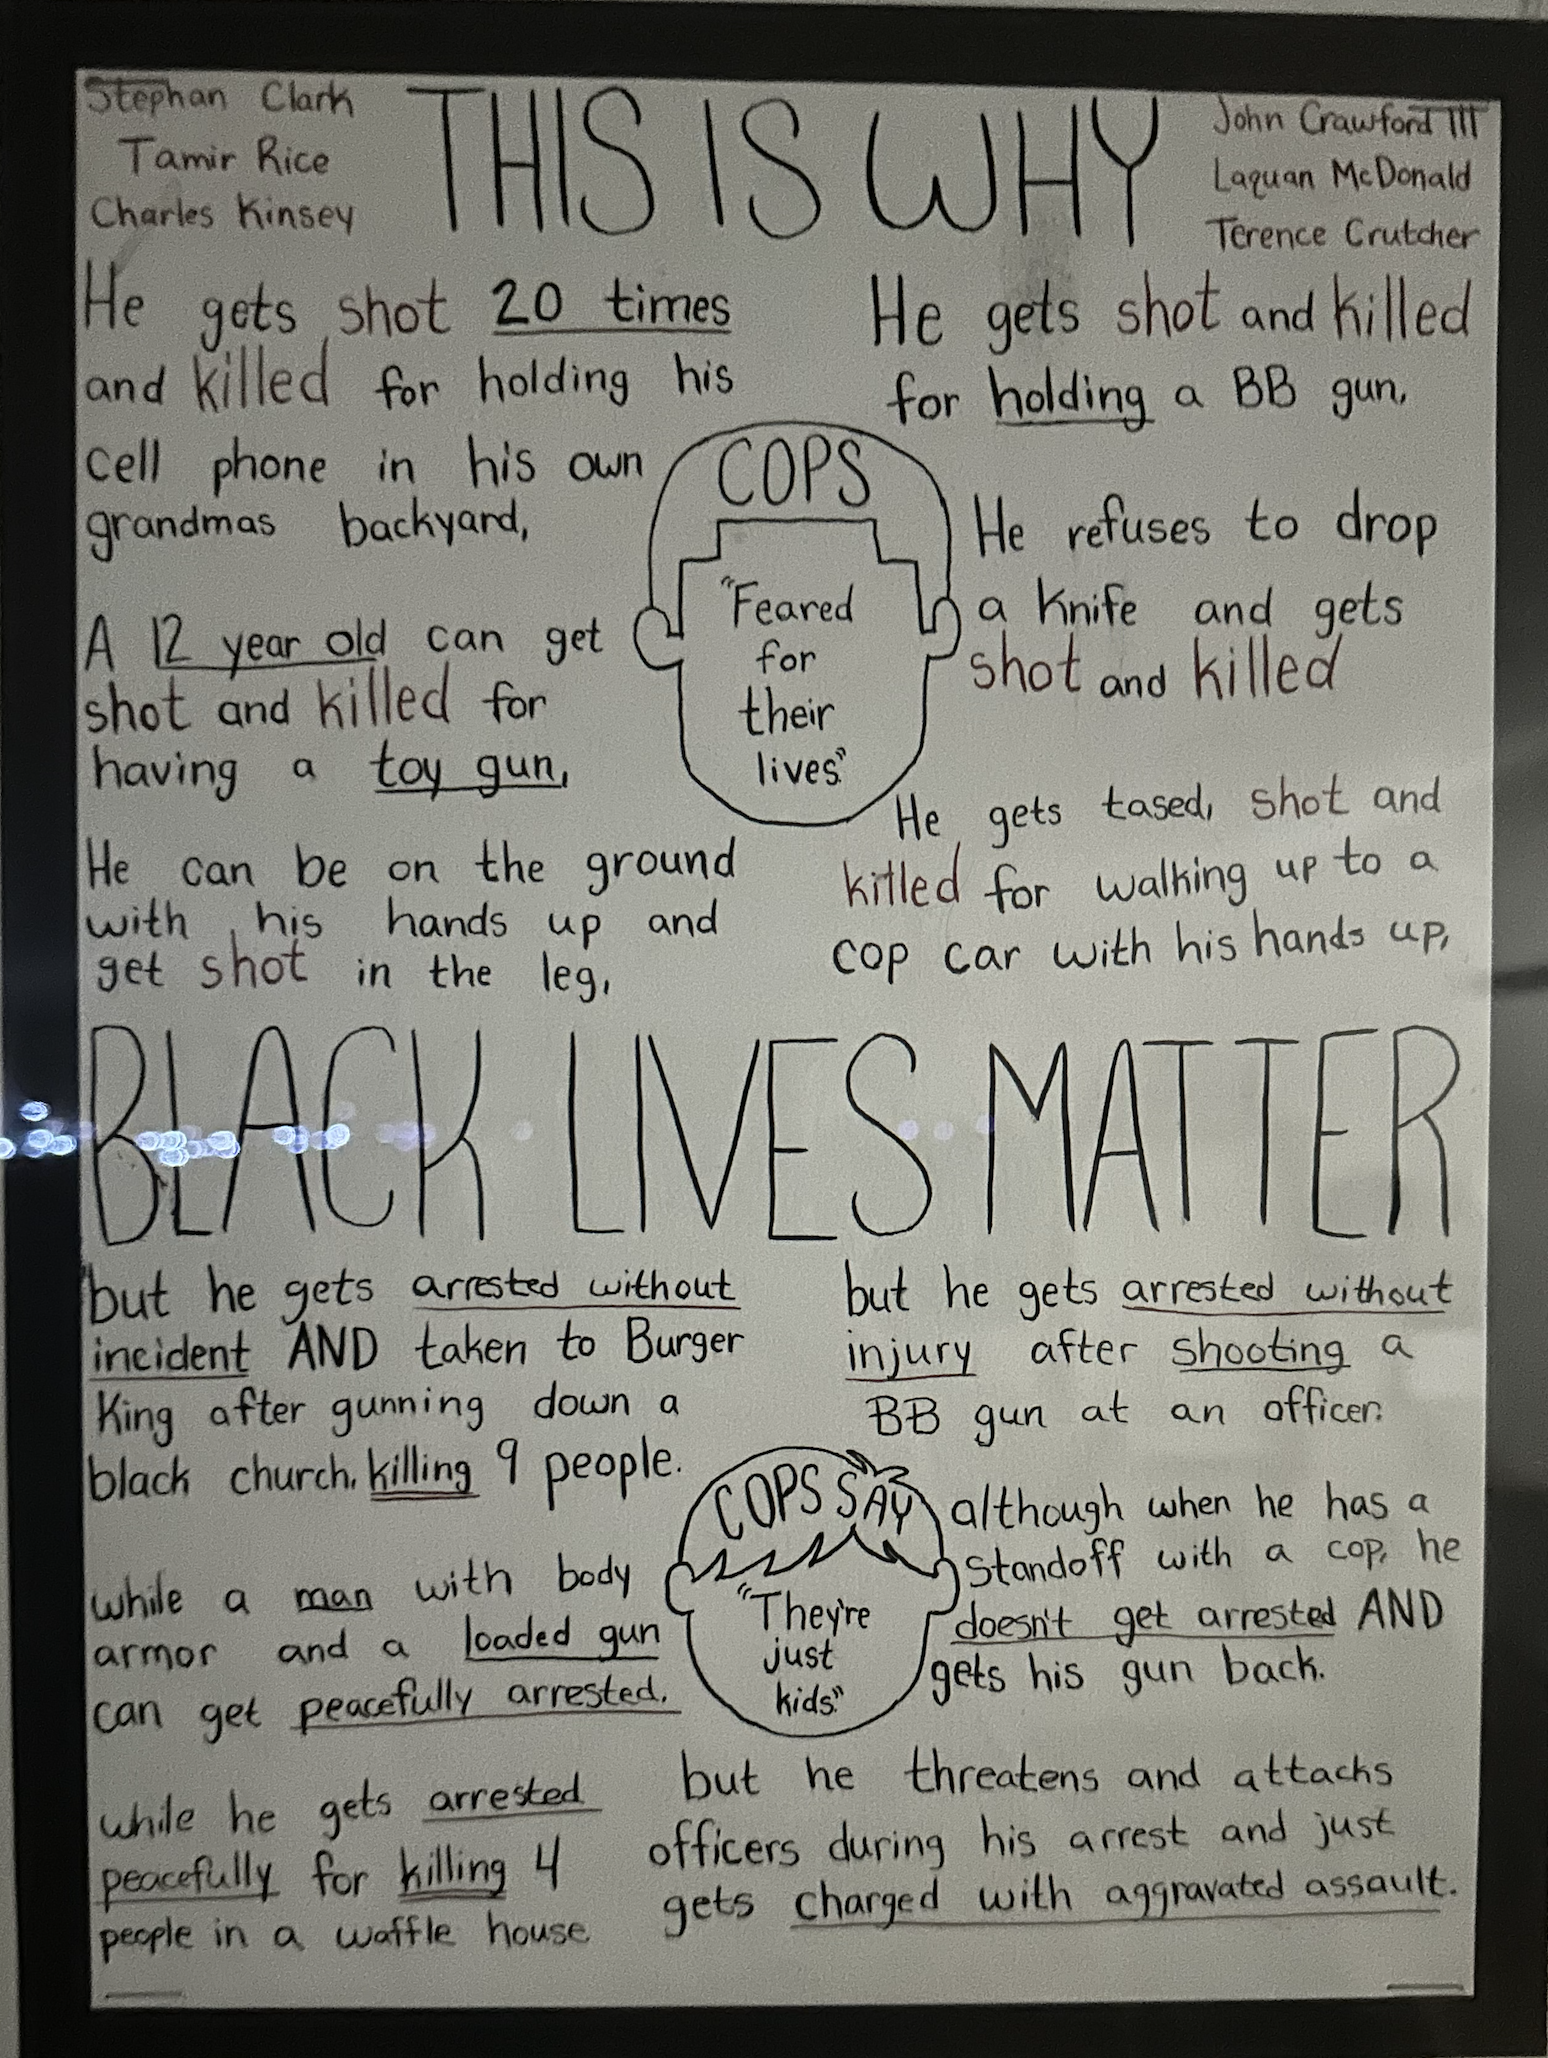 Stephan Clark
Tamir Rice
Charles Kinsey
THIS IS WHY
John Crawford III
Laquan McDonald
Terence Crutcher
He gets shot 20 times
and killed for holding his
cell phone in his own
grandmas backyard,
A 12 year old can get
shot and killed for
having a toy gun,
He can be on the ground
with his hands up and
get shot in the leg,
COPS
"Feared
for
their
lives"
He gets shot and killed
for holding a BB gun,
He refuses to drop
a knife and gets
shot and killed
He gets tased, shot and
killed for walking up to a
cop car with his hands up,
BLACK LIVES MATTER
but he gets arrested without
incident AND taken to Burger
King after gunning down a
black church, killing 9 people.
while a man with body
armor and a loaded gun
can get peacefully arrested.
while he gets arrested
peacefully for killing 4
people in a waffle house
COPS SAY
"They're
just
kids"
but he gets arrested without
injury after shooting a
BB gun at an officer.
although when he has a
standoff with a cop, he
doesn't get arrested AND
gets his gun back.
but he threatens and attacks
officers during his arrest and just
gets charged with aggravated assault.